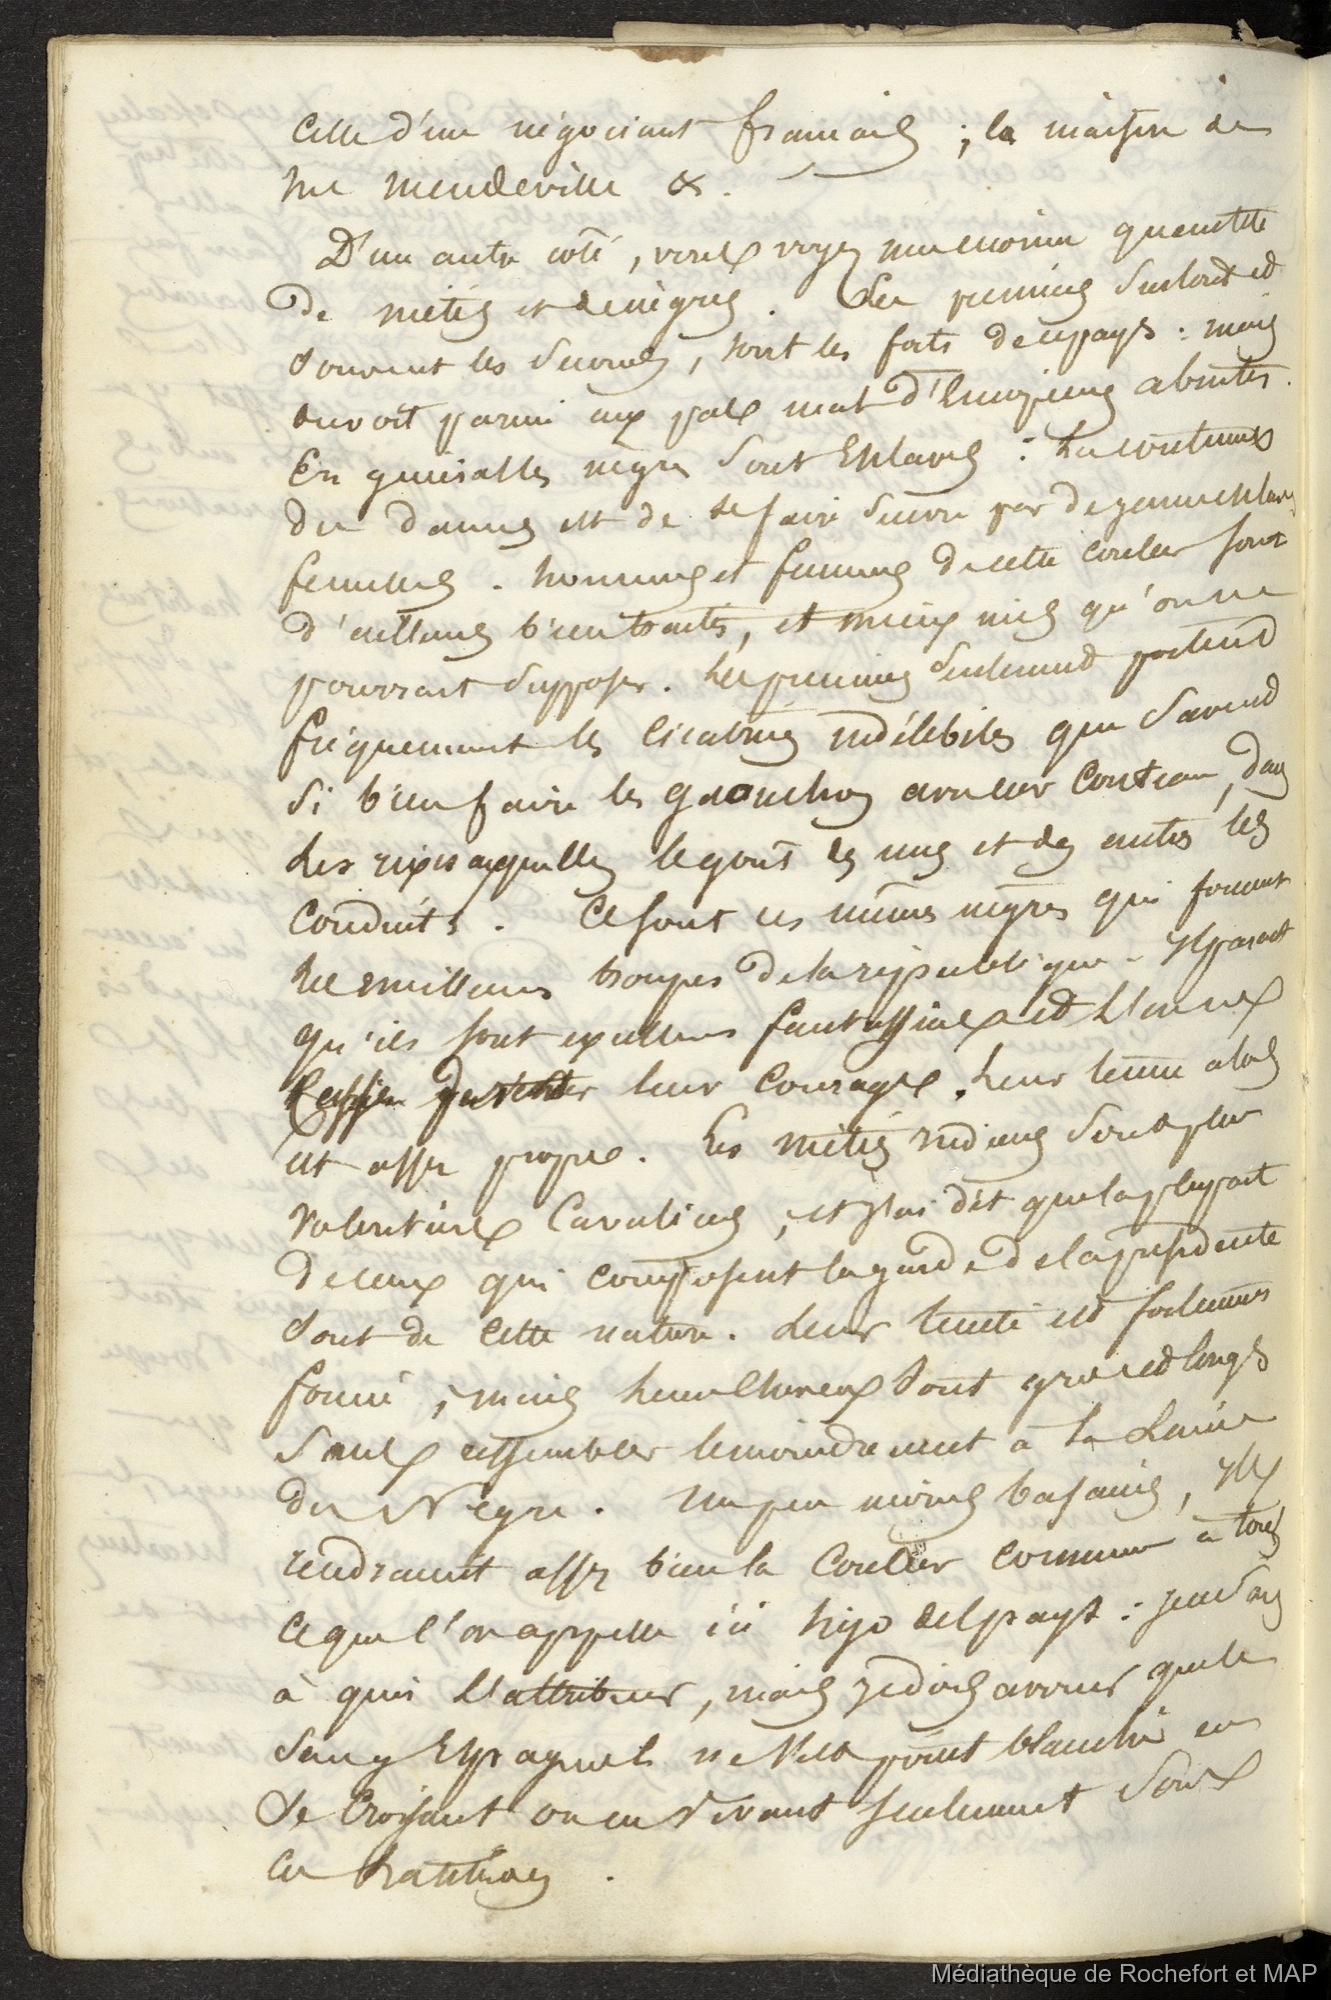 celle d'un négociant français ; la maison de
Mr Mendeville &.
D'un autre côté, vous voyez une moindre quantité
de métis et de nègres. Les premiers surtout et
souvent les seconds, sont les forts de ce pays : mais
on voit parmi eux pas mal d'Indiens abrutis.
En général les nègres sont Esclaves : la coutume
des dames est de se faire suivre par de jeunes esclaves
femelles. hommes et femmes de cette couleur sont
d'ailleurs bien traités, et mieux mis qu'on ne
pourrait supposer. Les premiers seulement portent
fréquemment les cicatrices indélébiles que savent
si bien faire les gaouchos avec leur couteau, dans
les rixes auxquelles le goût des uns et des autres les
conduit. Ce sont ces mêmes nègres qui forment
les meilleures troupes de la république. Il paraît
qu'ils sont excellents fantassins et l'on ne
leur courage. Leur tenue alors
est assez propre. Les métis indiens sont plus
volontiers Cavaliers, et j'ai dit que la plupart
de ceux qui composent la garde de la présidente
sont de cette nature. Leur teinte est fortement
foncé, mais leurs cheveux sont gros et longs
sans ressembler le moindrement à la laine
du Nègre. Un peu moins basanés, Ils
rendraient assez bien la Couleur commune à tous
ce que l'on appelle ici hijo del pays : je ne sais
à quoi l'attribuer, mais je dois avouer que le
sang Espagnol ne s'est point blanchi en
se croisant ou en vivant seulement sous
ces
Médiathèque de Rochefort et MAP